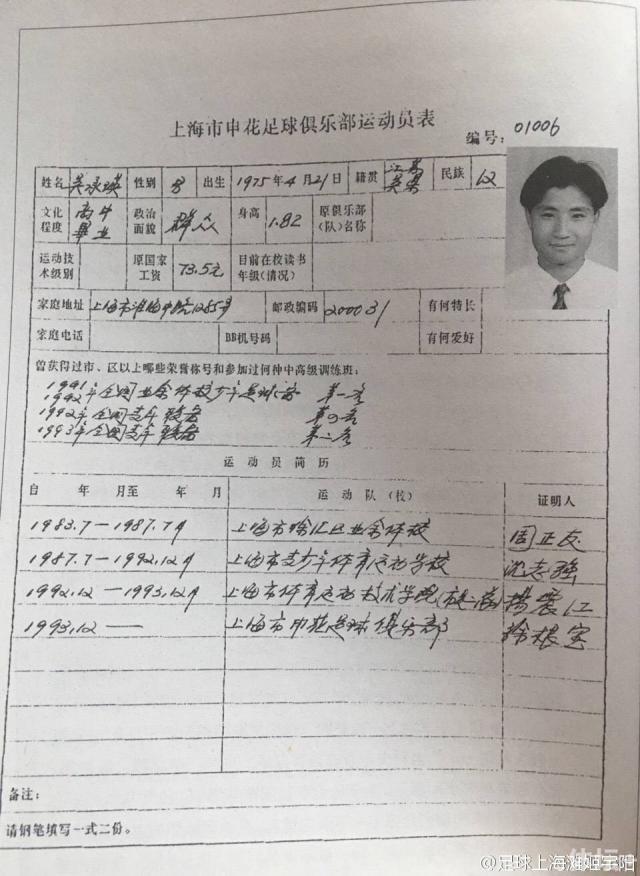 上海市申花足球俱乐部运动员表
编号：01006
姓名 吴承瑛 性别 男 出生 1975年4月21日 籍贯 江苏吴县 民族 汉
文化程度 高中畢业 政治面貌 群众 身高 1.82 原俱乐部(队)名称
运动技术级别 原国家工资 73.5元 目前在校读书年级(情况)
家庭地址 上海市淮海中路1285号 邮政编码 200031 有何特长
家庭电话 BB机号码 有何爱好
曾获得过市、区以上哪些荣誉称号和参加过何种中高级训练班：
1991
1992年全国业余体校少年足球赛 第一名
1992年全国青年联赛 第四名
1993年全国青年联赛 第二名
运动员简历
自 年 月至 年 月 运动队(校) 证明人
1983.7—1987.7月 上海市徐汇区业余体校 周正友
1987.7—1992.12月 上海市青少年体育运动学校 沈志强
1992.12—1993.12月 上海市体育运动技术学院 楊震江
1993.12— 上海市申花足球俱乐部 徐根宝
备注：
请钢笔填写一式二份。
@足球上海滩姬宇阳